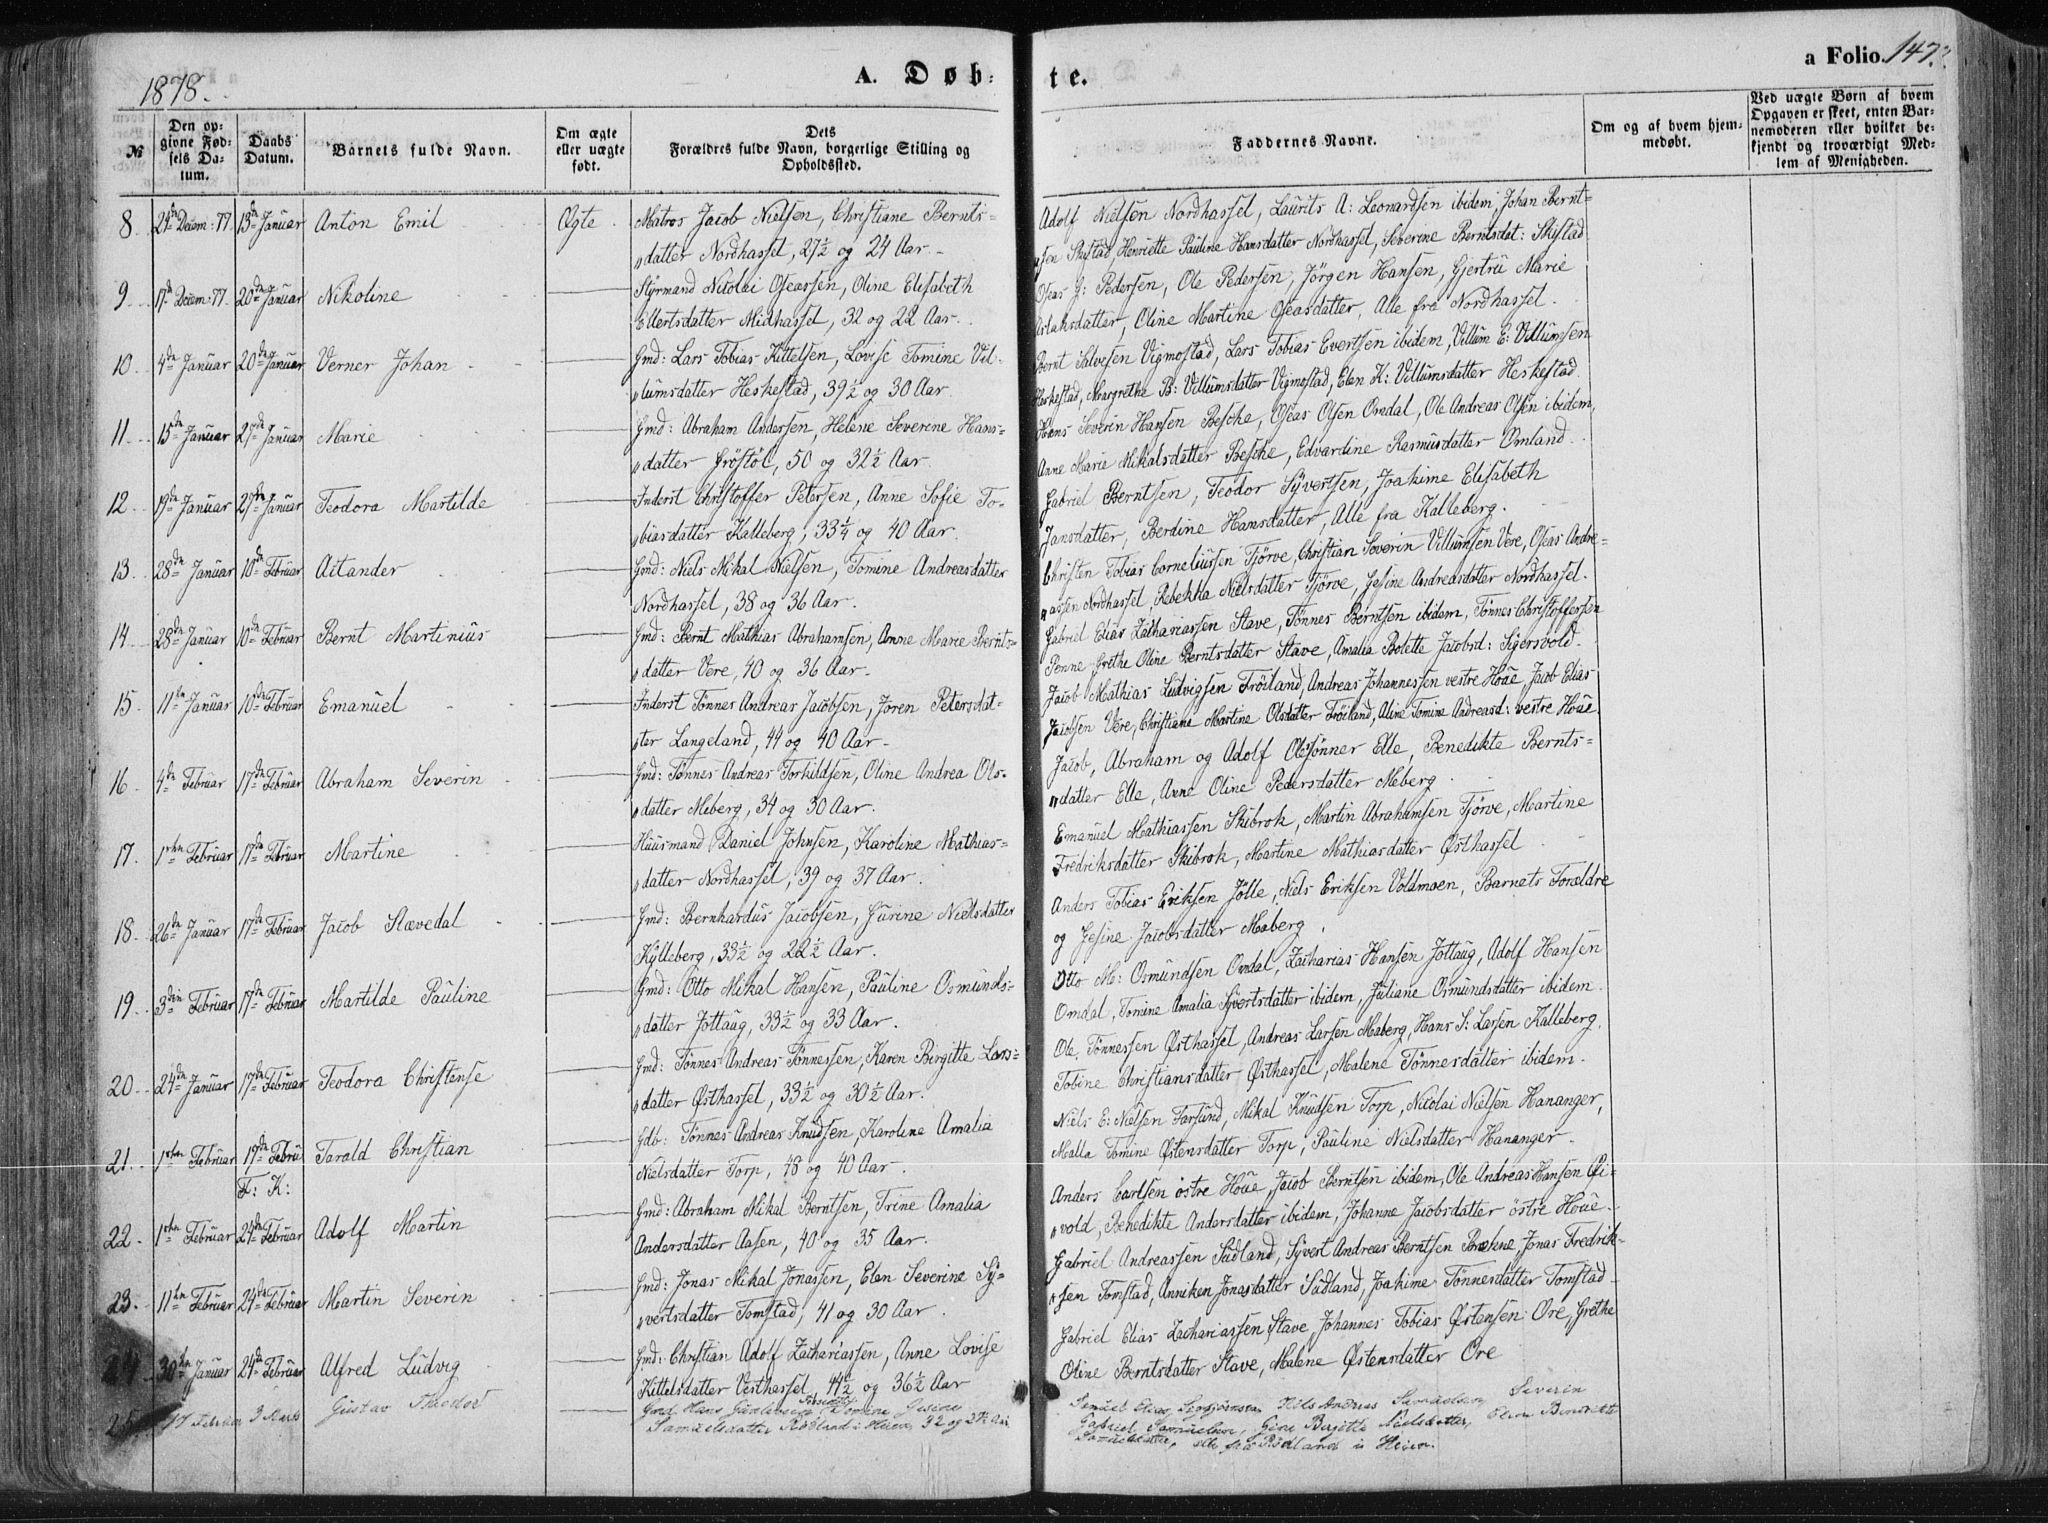 1878.
A. Døb=
te.
a Folio. 147.
№
Den opgivne Fødsels Datum.
Daabs Datum.
Barnets fulde Navn.
Om ægte eller uægte født.
Dets Forældres fulde Navn, borgerlige Stilling og Opholdssted.
Faddernes Navne.
Om og af hvem hjemmedøbt.
Ved uægte Børn af hvem Opgaven er skeet, enten Barnemoderen eller hvilket bekjendt og troværdigt Medlem af Menigheden.
8 24de Decem: 77. 13de Januar Anton Emil Ægte Matros Jacob Nielsen, Christiane Bernts=
"datter Nordhassel, 27½ og 24 Aar.
Adolf Nielsen Nordhassel, Laurits A: Leonardsen ibidem, Johan Bernt=
"sen Skistad, Henriette Pauline Hansdatter Nordhassel, Severine Berntsdat: Skistad
9 17de Decem: 77. 20de Januar Nikoline Styrmand Nicolai Oseassen, Oline Elisabeth
Ellertsdatter Midhassel, 32 og 22 Aar.
Oseas G: Pedersen, Ole Pedersen, Jörgen Hansen, Gjertrü Marie
Aslaksdatter, Oline Martine Oseasdatter, Alle fra Nordhassel.
10 4de Januar 20de Januar Verner Johan Gmd: Lars Tobias Kittelsen, Lovise Tomine Vil-
"lumsdatter Heskestad, 39½ og 30 Aar.
Bernt Salvesen Vigmostad, Lars Tobias Evertsen ibidem, Villum E: Villumsen
Heskestad, Margrethe B: Villumsdatter Vigmostad, Elen K: Villumsdatter Heskestad
11 15de Januar 27de Januar Marie Gmd: Abraham Andersen, Helene Severine Hans=
"datter Gröstöl, 50 og 32½ Aar.
Hans Severin Hansen Besche, Oseas Olsen Omdal, Ole Andreas Olsen ibidem,
Anne Marie Mikalsdatter Besche, Edvardine Rasmusdatter Omland.
12 19de Januar 27de Januar Teodora Martilde Inderst Christoffer Petersen, Anne Sofie To-
"biasdatter Kalleberg, 33¼ og 40 Aar.
Gabriel Berntsen, Teodor Syvertsen, Joakime Elisabeth
Jansdatter, Berdine Hansdatter, Alle fra Kalleberg.
13 28de Januar 10de Februar Aitander Gmd: Niels Mikal Nielsen, Tomine Andreasdatter
Nordhassel, 38 og 36 Aar.
Christen Tobias Corneliussen Tjörve, Christian Severin Villumsen Vere, Oseas Andre=
"assen Nordhassel, Rebekka Nielsdatter Tjörve, Gesine Andreasdatter Nordhassel.
14 28de Januar 10de Februar Bernt Martinius Gmd: Bernt Mathias Abrahamsen, Anne Marie Bernts-
"datter Vere, 40 og 36 Aar.
Gabriel Elias Zachariassen Stave, Tönnes Berntsen ibidem, Tönnes Christoffersen
Penne Grethe Oline Berntsdatter Stave, Amalia Bolette Jacobsd: Sigersvold.
15 11te Januar 10de Februar Emanuel Inderst Tönnes Andreas Jacobsen, Joren Petersdat-
"ter Langeland, 44 og 40 Aar.
Jacob Mathias Ludvigsen Fröiland, Andreas Johannessen vestre Houe, Jacob Elias
Jacobsen Vere, Christiane Martine Olsdatter Fröiland, Aline Tomine Andreasd: vestre Houe
16 4de Februar 17de Februar Abraham Severin Gmd: Tönnes Andreas Torkildsen, Oline Andrea Ols-
"datter Meberg, 34 og 30 Aar.
Jacob, Abraham og Adolf Olesönner Elle, Benedikte Bernts=
"datter Elle, Anne Oline Pedersdatter Meberg.
17 1ste Februar 17de Februar Martine Huusmand Daniel Johnsen, Karoline Mathias-
"datter Nordhassel, 39 og 37 Aar.
Emanuel Mathiassen Skibrok, Martin Abrahamsen Tjörve, Martine
Fredriksdatter Skibrok, Martine Mathiasdatter Østhassel
18 26de Januar 17de Februar Jacob Stævedal Gmd: Bernhardus Jacobsen, Gurine Nielsdatter
Kylleberg, 33½ og 22½ Aar.
Anders Tobias Eriksen Jölle, Niels Eriksen Voldmoen, Barnets Forældre
og Gesine Jacobsdatter Maberg.
19 3die Februar 17de Februar Martilde Pauline Gmd: Otto Mikal Hansen, Pauline Osmunds-
"datter Jottaug, 33½ og 33 Aar.
Otto M: Osmundsen Omdal, Zacharias Hansen Jottaug, Adolf Hansen
Omdal, Tomine Amalia Syvertsdatter ibidem, Juliane Osmundsdatter ibidem.
20 24de Januar 17de Februar Teodora Christense Gmd: Tönnes Andreas Tönnessen, Karen Birgitte Lars-
"datter Østhassel, 33½ og 30½ Aar.
Ole Tönnessen Østhassel, Andreas Larsen Maberg, Hans S: Larsen Kalleberg,
Tobine Christiansdatter Østhassel, Malene Tönnesdatter ibidem.
21 1ste Februar 17de Febru F: K: Tarald Christian Gdb: Tönnes Andreas Knudsen, Karoline Amalia
Nielsdatter Torp, 48 og 40 Aar.
Niels E: Nielsen Farsund, Mikal Knudsen Torp, Nicolai Nielsen Hananger,
Malla Tomine Østensdatter Torp, Pauline Nielsdatter Hananger.
22 1ste Februar 24de Februar Adolf Martin Gmd: Abraham Mikal Berntsen, Trine Amalia
Andersdatter Aasen, 40 og 35 Aar.
Anders Carlsen östre Houe, Jacob Berntsen ibidem, Ole Andreas Hansen Øi-
"vold, Benedikte Andersdatter ibidem, Johanne Jacobsdatter östre Houe.
23. 11te Februar 24de Februar Martin Severin Gmd: Jonas Mikal Jonassen, Elen Severine Sy-
"vertsdatter Tomstad, 41 og 30 Aar.
Gabriel Andreassen Sudland, Syvert Andreas Berntsen Brekne, Jonas Fredrik-
"sen Tomstad, Anniken Jonasdatter Sudland, Joakime Tönnesdatter Tomstad
24 30te Januar 24de Februar Alfred Ludvig Gmd: Christian Adolf Zachariassen, Anne Lovise
Kittelsdatter Vesthassel, 44½ og 36½ Aar
Gabriel Elias Zachariassen Stave, Johannes Tobias Østensen Ore, Grethe
Oline Berntsdatter Stave, Malene Østensdatter Ore
25 17 Februar 3 Marts Gustav Theodor Gmd Hans Tomine Gesine
Samuelsdatter Rødland i Heien 32 og Aar
Samuel Elias Nils Andreas Samuelsen Severin
Gabriel Samuelsen, Gine Birgitte Nielsdatter, Elen Bendikte
Samuelsdatter, alle fra Rødland i Heien.